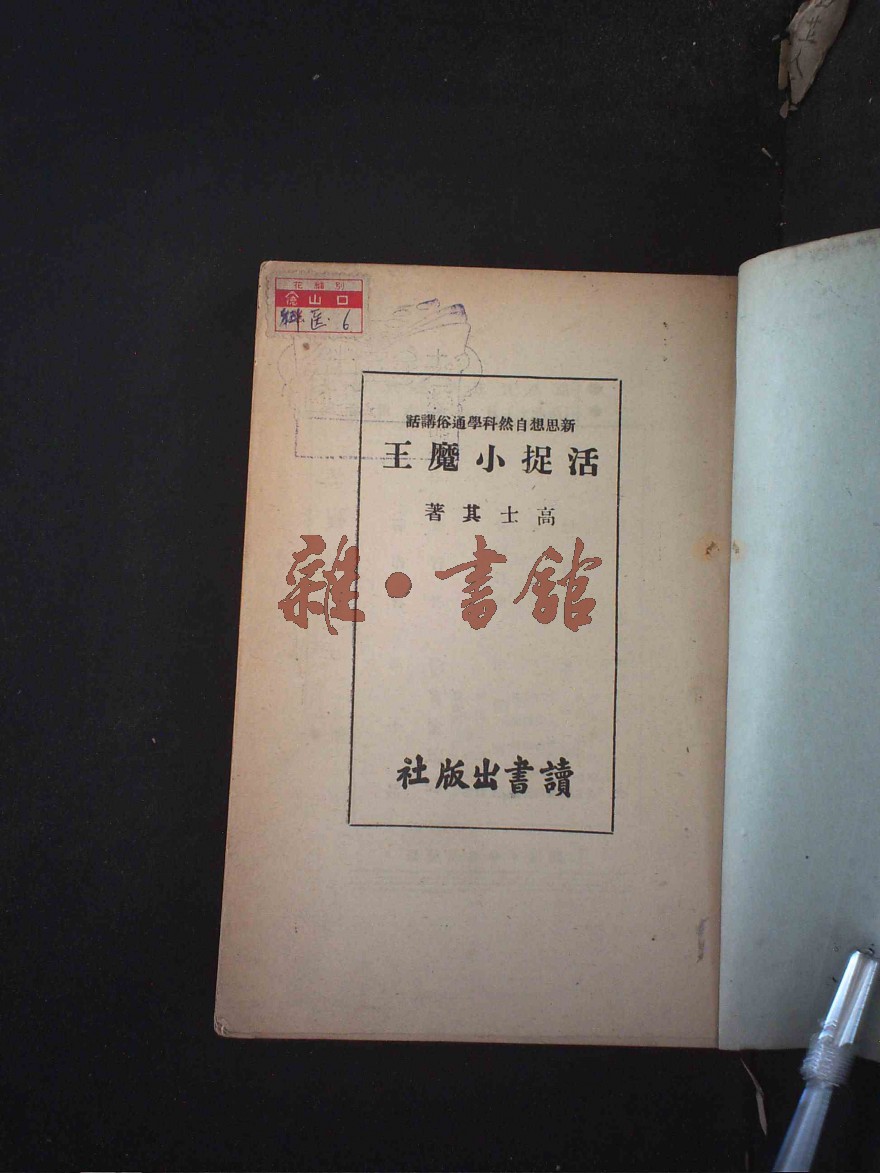 口山
6
新思想自然科學通俗講話
活捉小魔王
高士其著
雜·書館
讀書出版社